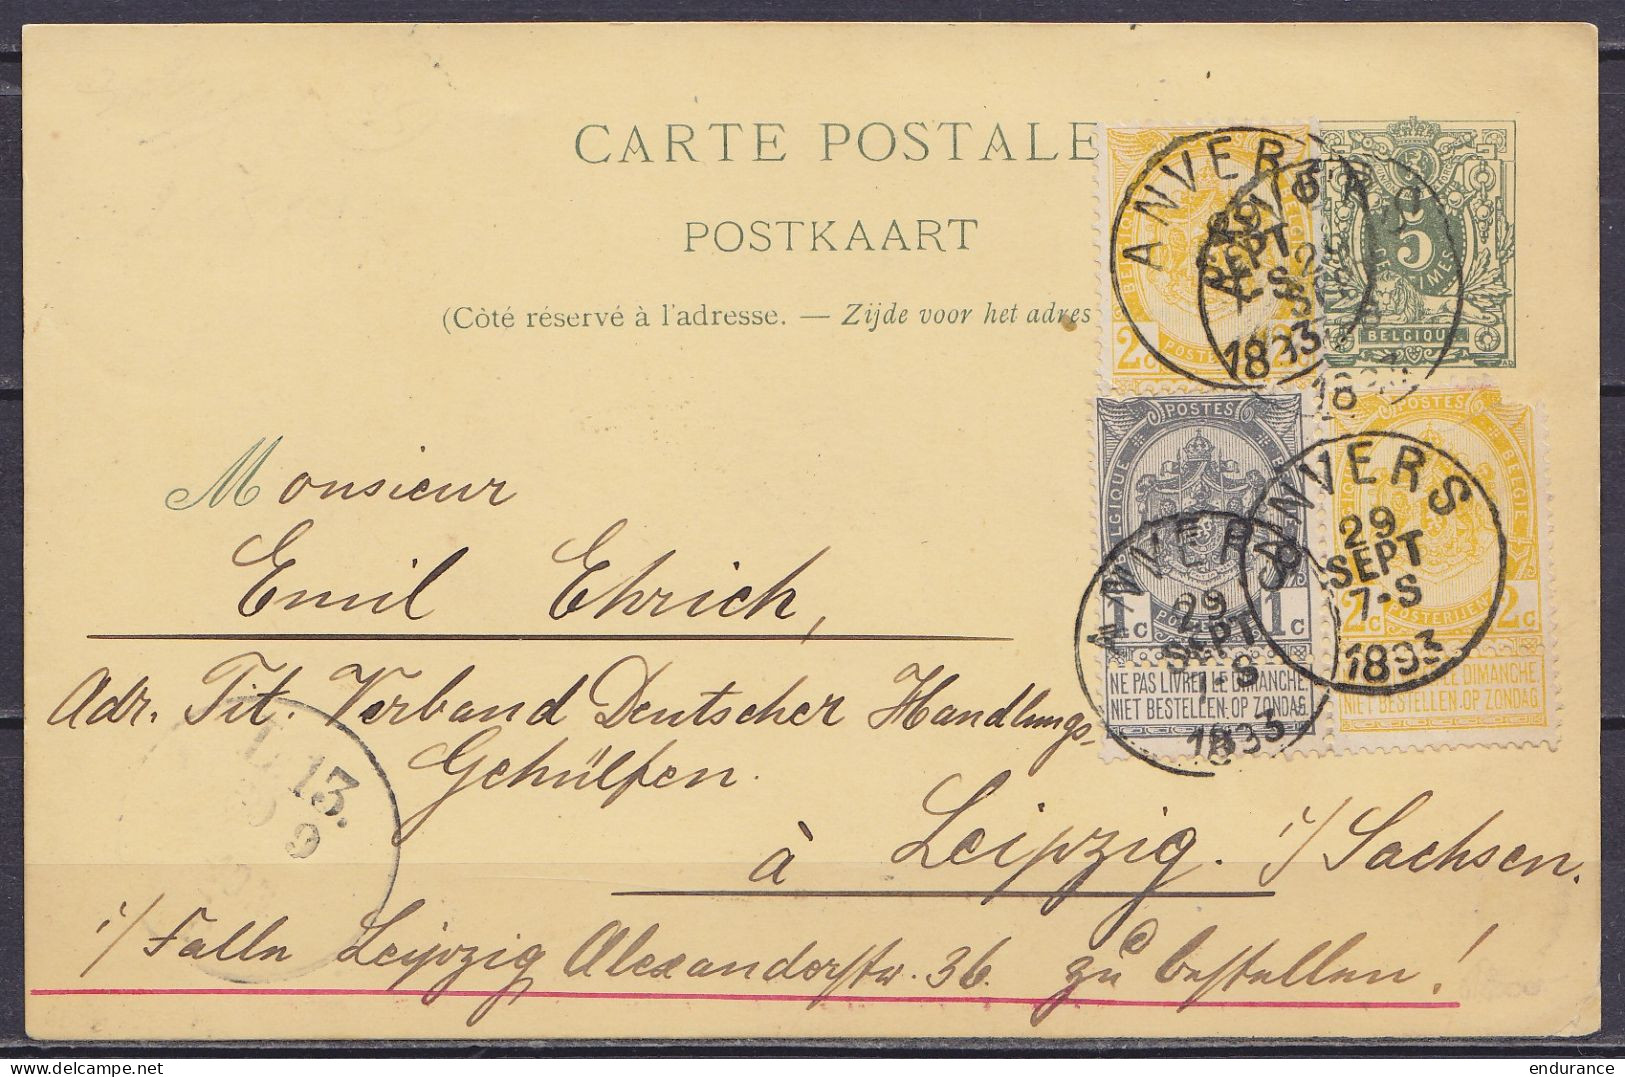 CARTE POSTALE
POSTKAART
(Côté réservé à l'adresse. — Zijde voor het adres
Monsieur
Emil Ehrich,
Adr. Tit. Verband Deutscher Handlungs-
Gehülfen.
à Leipzig. i/ Sachsen.
i/ Falle Leipzig Alexanderstr. 36. zu bestellen!
ANVERS
29
SEPT
7-S
1893
5
BELGIQUE
BELGIQUE
2c POSTERIJEN 2c
POSTES
1c 1c
NE PAS LIVRER LE DIMANCHE
NIET BESTELLEN OP ZONDAG
ANVERS
29
SEPT
7-S
1893
POSTES
BELGIË
2c POSTERIJEN 2c
LE DIMANCHE
NIET BESTELLEN OP ZONDAG
ANVERS
29
SEPT
7-S
1893
L. 13.
9
endurance